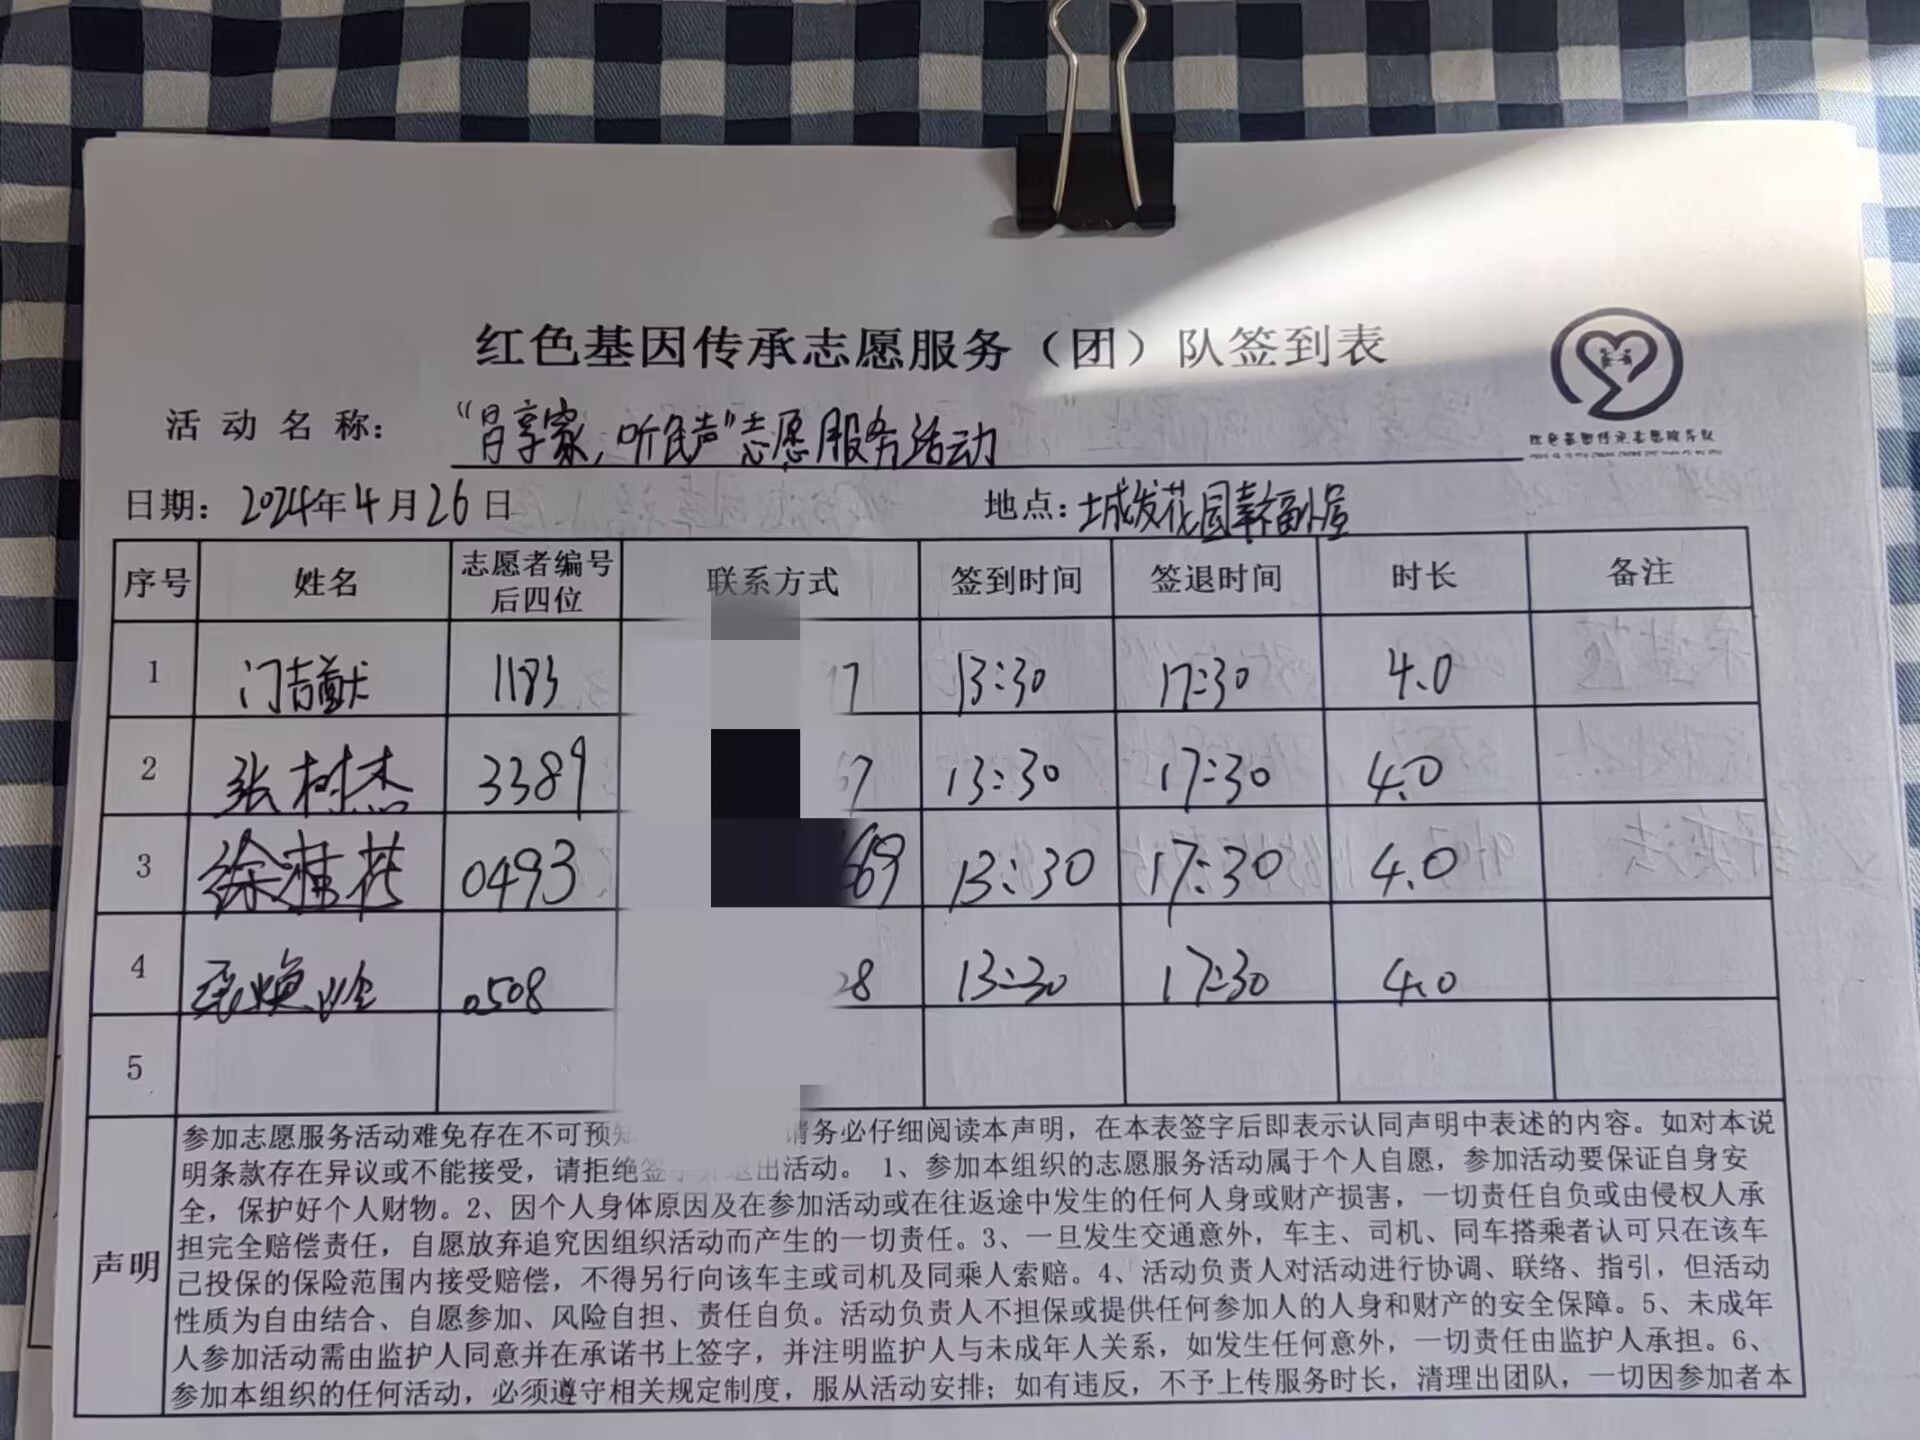 红色基因传承志愿服务（团）队签到表
活动名称： “音享家，听民声”志愿服务活动
日期：2024年4月26日 地点：城发花园幸福小屋
序号 姓名 志愿者编号后四位 联系方式 签到时间 签退时间 时长 备注
1 门吉猷 1183 17 13:30 17:30 4.0
2 张树杰 3389 37 13:30 17:30 4.0
3 徐桂花 0493 69 13:30 17:30 4.0
4 0508 28 13:30 17:30 4.0
5
声明
参加志愿服务活动难免存在不可预知 请务必仔细阅读本声明，在本表签字后即表示认同声明中表述的内容。如对本说
明条款存在异议或不能接受，请拒绝签字并退出活动。 1、参加本组织的志愿服务活动属于个人自愿，参加活动要保证自身安
全，保护好个人财物。2、因个人身体原因及在参加活动或在往返途中发生的任何人身或财产损害，一切责任自负或由侵权人承
担完全赔偿责任，自愿放弃追究因组织活动而产生的一切责任。3、一旦发生交通意外，车主、司机、同车搭乘者认可只在该车
已投保的保险范围内接受赔偿，不得另行向该车主或司机及同乘人索赔。4、活动负责人对活动进行协调、联络、指引，但活动
性质为自由结合、自愿参加、风险自担、责任自负。活动负责人不担保或提供任何参加人的人身和财产的安全保障。5、未成年
人参加活动需由监护人同意并在承诺书上签字，并注明监护人与未成年人关系，如发生任何意外，一切责任由监护人承担。6、
参加本组织的任何活动，必须遵守相关规定制度，服从活动安排；如有违反，不予上传服务时长，清理出团队，一切因参加者本